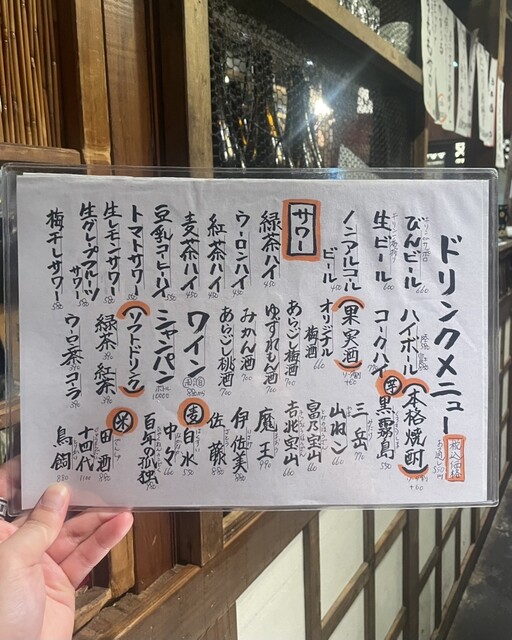 ドリンクメニュー
税込価格
お通し550円
びんビール 660
生ビール 660
ノンアルコール
ビール 400
サワー
緑茶ハイ 450
ウーロンハイ 450
紅茶ハイ 450
麦茶ハイ 450
豆乳コーヒーハイ 550
トマトサワー 550
生レモンサワー 550
生グレープフルーツ
サワー 550
梅干しサワー 550
ハイボール
コークハイ
果実酒
オリジナル
梅酒
あらごし梅酒 700
ゆずれもん酒 700
みかん酒 700
あらごし桃酒 700
ワイン
シャンパン
ソフトドリンク
緑茶 紅茶
ウーロン茶 コーラ
本格焼酎
芋
黒霧島 550
三岳 770
山ねこ 660
富乃宝山 660
吉兆宝山 660
魔王 990
伊佐美 880
佐藤 880
麦
白水 550
中々 660
百年の孤独
米
田酒 880
十四代 880
鳥飼 880